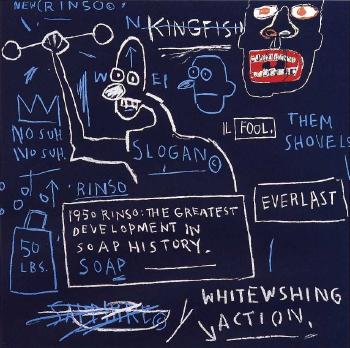 NEW(RINSO©
N.
KINGFISH
W EI
NO SUH.
NO SUH.
SLOGAN©
IL FOOL.
THEM
SHOVELS
RINSO
1950 RINSO: THE GREATEST
DEVELOPMENT IN
SOAP HISTORY.
SOAP
EVERLAST
50
LBS.
SAPPHIRE©
WHITEWSHING
ACTION.